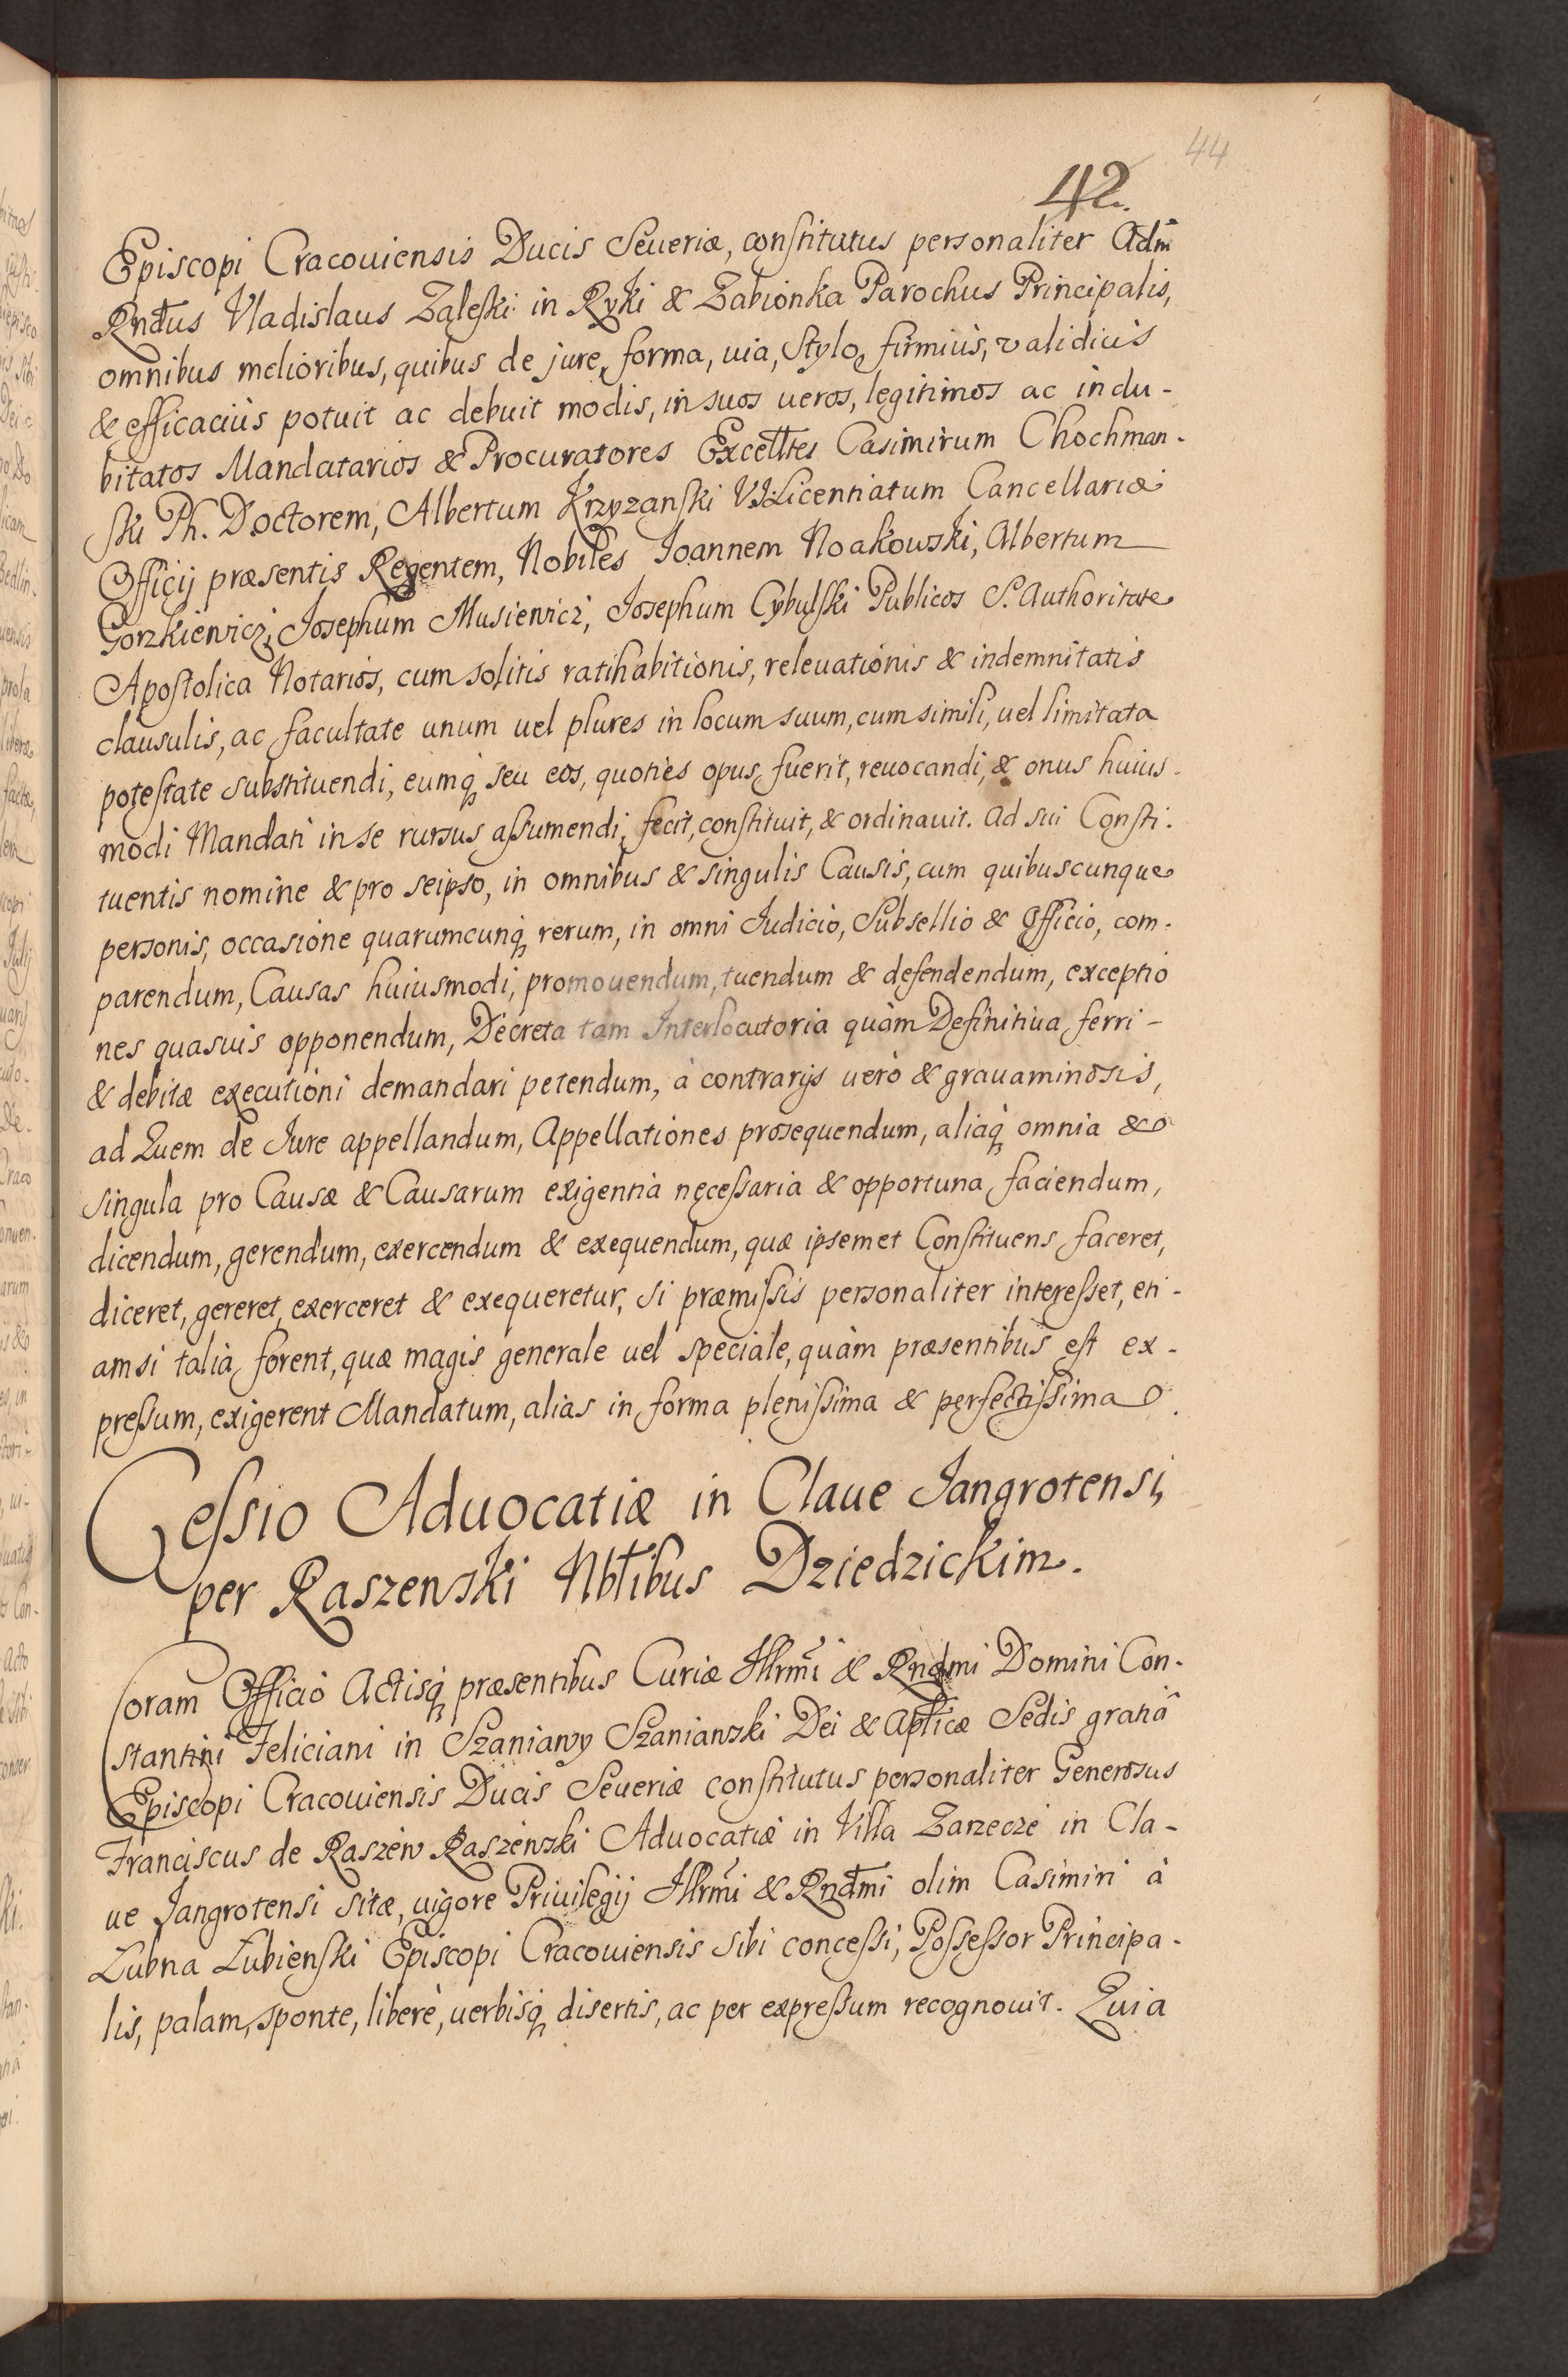 44
42.
Episcopi Cracouiensis Ducis Seueriæ, constitutus personaliter Adm̄
Rnd̄us Vladislaus Zaleski in Ryki & Zabionka Parochus Principalis,
omnibus melioribus, quibus de jure, forma, uia, stylo, firmiùs, validiùs
& efficaciùs potuit ac debuit modis, in suos ueros, legitimos ac indu-
bitatos Mandatarios & Procuratores Excell̄tes Casimirum Chochman-
ski Ph. Doctorem, Albertum Krzyzanski V.J. Licentiatum Cancellariæ
Officij præsentis Regentem, Nobiles Joannem Noakowski, Albertum
Gorzkiewicz, Josephum Musiewicz, Josephum Cybulski Publicos S. Authoritate
Apostolica Notarios, cum solitis ratihabitionis, releuationis & indemnitatis
clausulis, ac facultate unum uel plures in locum suum, cum simili, uel limitata
potestate substituendi, eumq́ seu eos, quoties opus fuerit, reuocandi, & onus huius-
modi Mandati in se rursus assumendi, fecit, constituit, & ordinauit. Ad sui Consti-
tuentis nomine & pro seipso, in omnibus & singulis Causis, cum quibuscunque
personis, occasione quarumcunq́ rerum, in omni Judicio, Subsellio & Officio, com-
parendum, Causas huiusmodi, promouendum, tuendum & defendendum, exceptio
nes quasuis opponendum, Decreta tam Interlocutoria quàm Definitiua ferri-
& debitæ executioni demandari petendum, à contrarijs uerò & grauaminosis,
ad Quem de Jure appellandum, Appellationes prosequendum, aliaq́ omnia &
singula pro Causæ & Causarum exigentia necessaria & opportuna faciendum,
dicendum, gerendum, exercendum & exequendum, quæ ipsemet Constituens faceret,
diceret, gereret, exerceret & exequeretur, si præmissis personaliter interesset, eti-
amsi talia forent, quæ magis generale uel speciale, quàm præsentibus est ex-
pressum, exigerent Mandatum, alias in forma plenissima & perfectissima.
Cessio Aduocatiæ in Claue Jangrotensi,
per Raszewski Nbl̄ibus Dziedzickim.
Coram Officio Actisq́ præsentibus Curiæ Jllrm̄i & Rndmi Domini Con-
stantini Feliciani in Szaniawy Szaniawski Dei & Apl̄icæ Sedis gratiâ
Episcopi Cracouiensis Ducis Seueriæ constitutus personaliter Generosus
Franciscus de Raszew Raszewski Aduocatiæ in Villa Zarzecze in Cla-
ue Jangrotensi sitæ, uigore Priuilegij Jllrm̄i & Rnd̄mi olim Casimiri à
Lubna Lubienski Episcopi Cracouiensis sibi concessi, Possessor Principa-
lis, palam, sponte, liberè, uerbisq́ disertis, ac per expressum recognouit. Quia